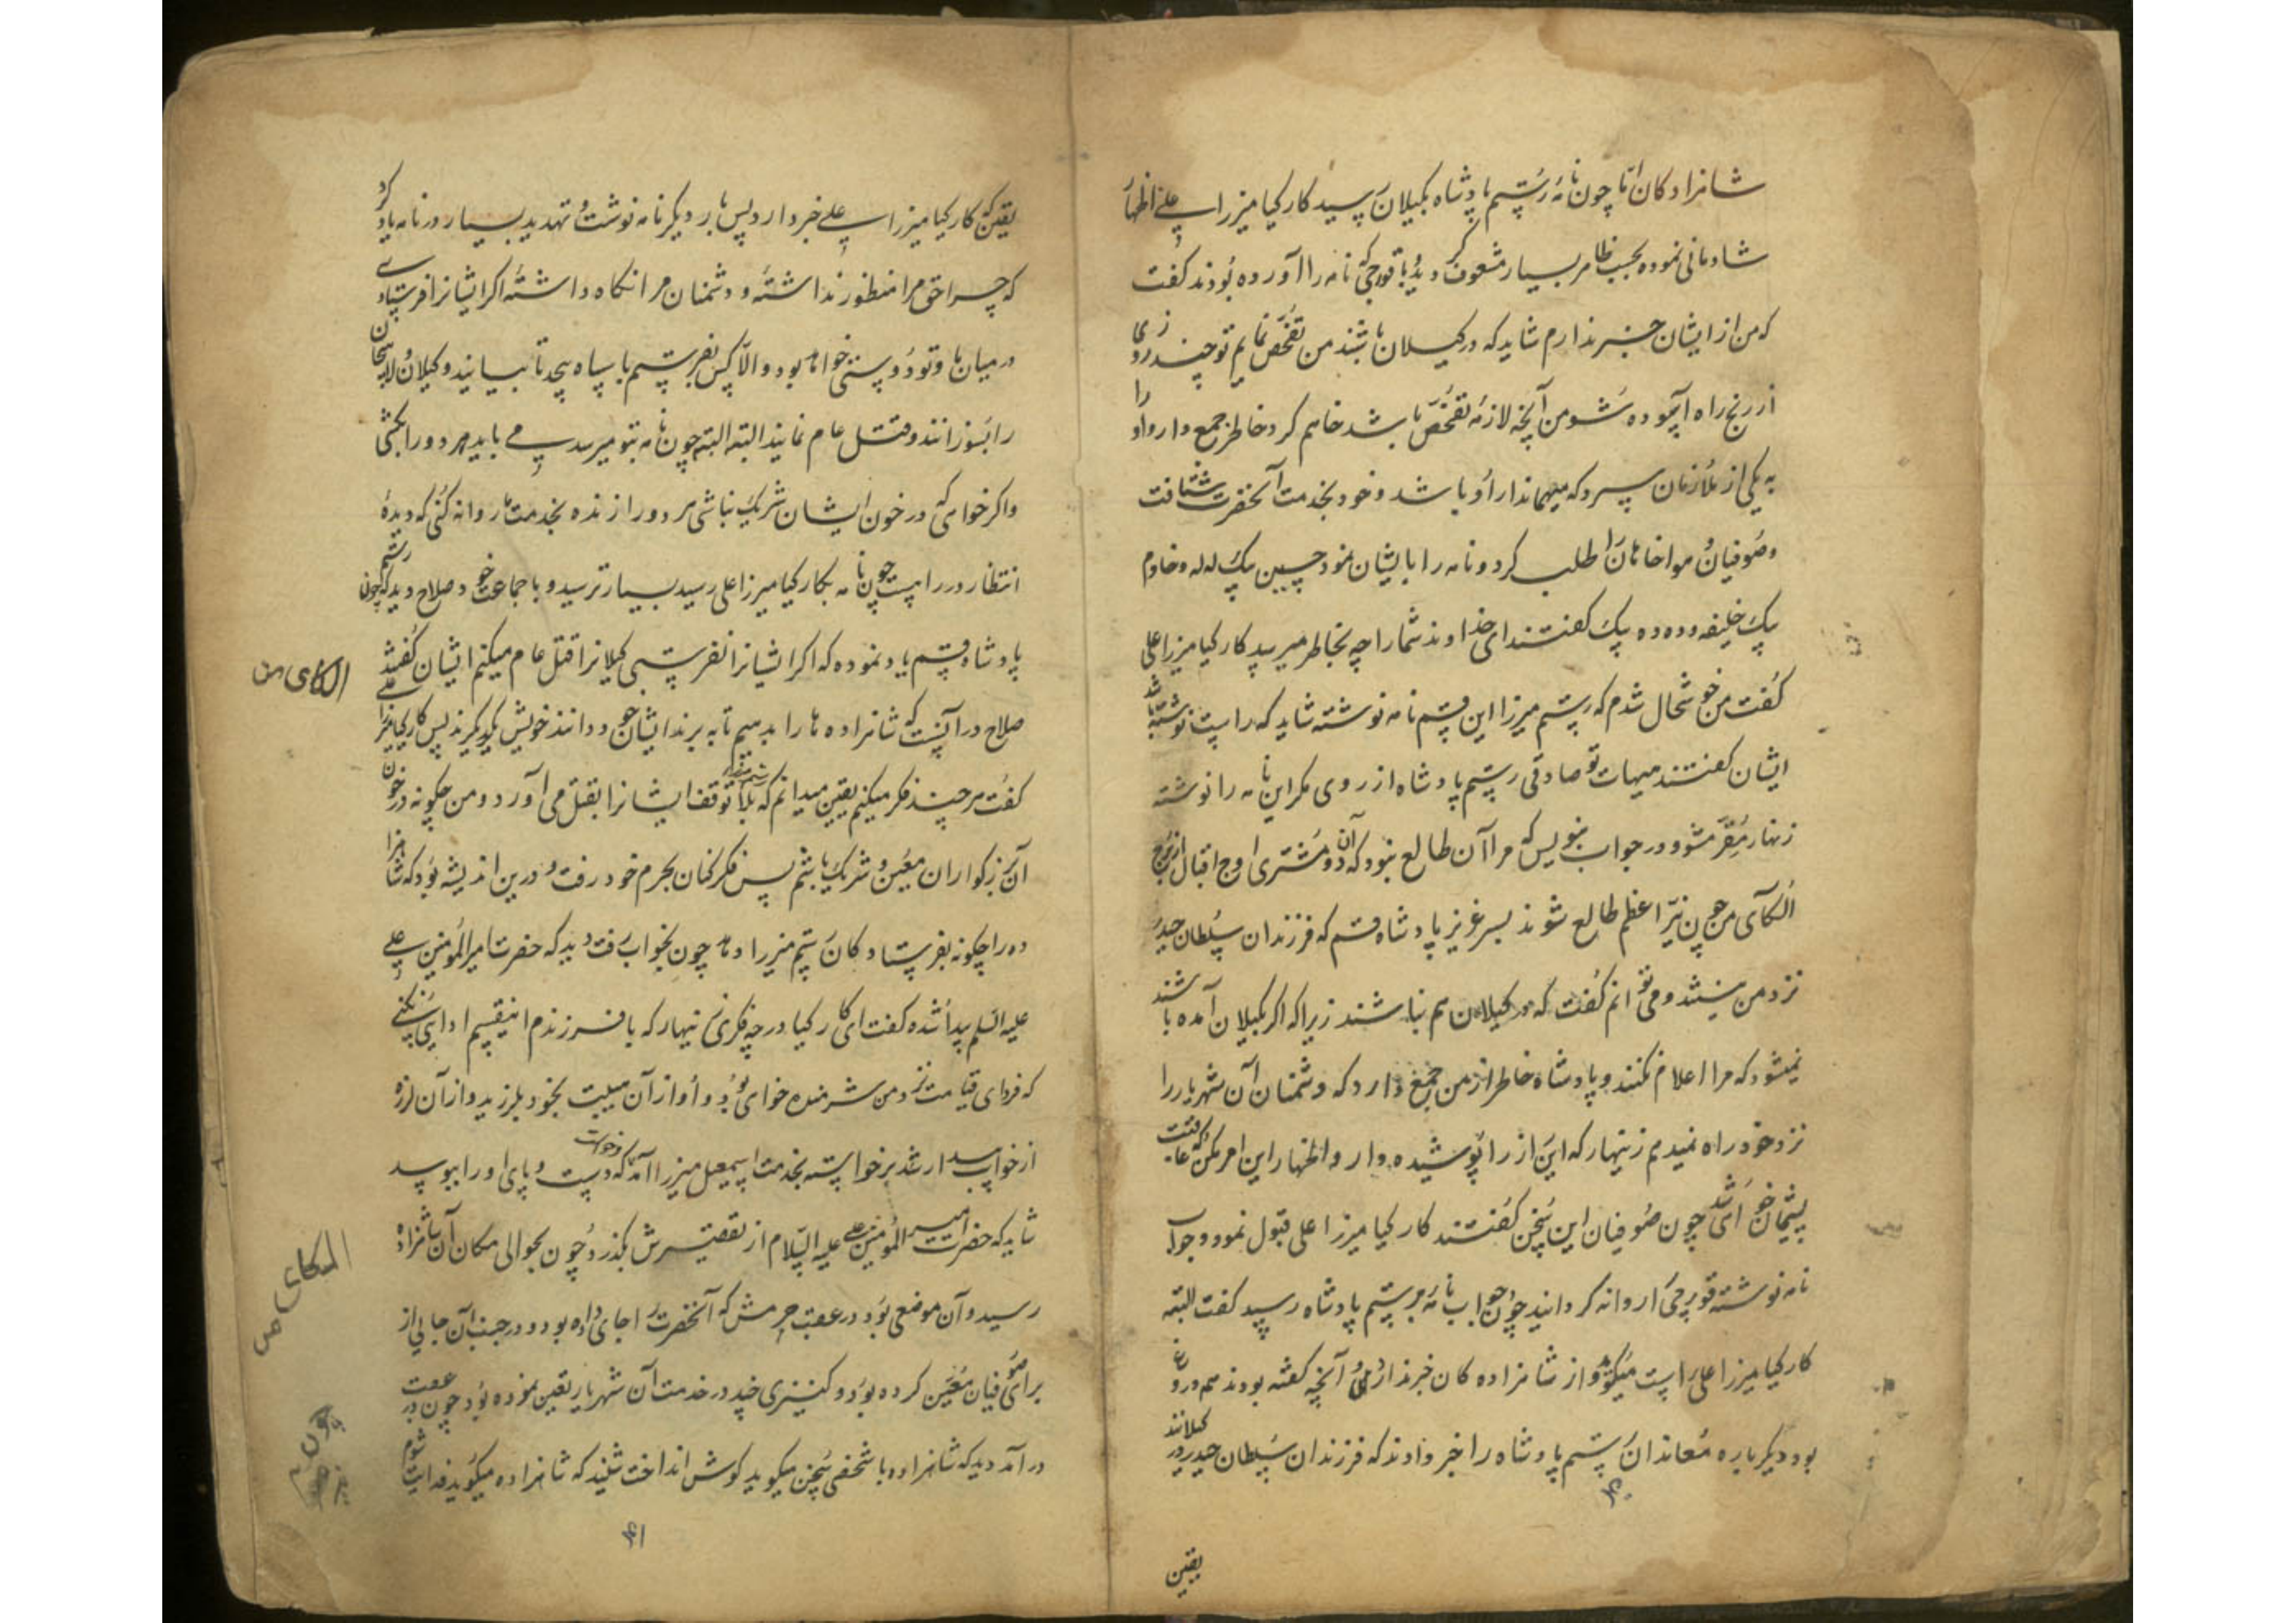 شاهزادكان امّا چون نامه رستم پادشاه بكيلان رسيد كاركيا ميرزا علی اظهار
شادمانی نموده بحسب ظاهر بسيار مشعوف كرديد و با قورجی كه نامه را آورده بودند كفت
كه من از ايشان خبر ندارم شايد كه در كيلان باشند من تفحص نمايم تو چند روزی
از رنج راه آسوده شو من آنچه لازمه تفحص باشد خواهم كرد خاطر جمع دار و او را
به يكی از ملازمان سپرد كه مهماندار او باشد و خود بخدمت آنحضرت شتافت
و صوفيان و هواخاهان را طلب كرد و نامه را بايشان نمود حسين بيك لـله و خادم
بيك خليفه و دده بيك كفتند ای خداوند شما را چه بخاطر ميرسد كاركيا ميرزا علی
كفت من خوشحال شدم كه رستم ميرزا اين قسم نامه نوشته شايد كه راست نوشته باشد
ايشان كفتند هيهات تو صادقی رستم پادشاه از روی مكر اين نامه را نوشته
زنهار مقر مشو و در جواب بنويس كه مرا آن طالع نبود كه آن دو مشتری اوج اقبال از برج
الكآی من چون نير اعظم طالع شوند بسر عزيز پادشاه قسم كه فرزندان سلطان حيدر
نزد من نيستند و می توانم كفت كه در كيلان هم نباشند زيرا كه اكر بكيلان آمده باشند
نميشود كه مرا اعلام نكنند و پادشاه خاطر از من جمع دارد كه دشمنان آن شهريار را
نزد خود راه نميدهم زينهار كه اين راز را پوشيده دار و اظهار اين امر مكن كه عاقبت
پشيمان خواهی شد چون صوفيان اين سخن كفتند كاركيا ميرزا علی قبول نمود و جواب
نامه نوشته قورچی را روانه كردانيد چون جواب نامه برستم پادشاه رسيد كفت البته
كاركيا ميرزا علی راست ميكويد و از شاهزاده كان خبر ندارد و آنچه كفته بودند هم دروغ
بود ديكر باره معاندان رستم پادشاه را خبر دادند كه فرزندان سلطان حيدر در كيلانند
يقين
يقين كه كاركيا ميرزا علی خبر دارد پس بار ديكر نامه نوشت و تهديد بسيار در نامه ياد كرد
كه چرا حق مرا منظور نداشته و دشمنان مرا نكاه داشته اكر ايشانرا فرستادی
در ميان ما و تو دوستی خواهد بود و الّا كس بفرستم با سپاه بيحد تا بيايند و كيلان و لاهيجان
را بسوزانند و قتل عام نمايند البته البته چون نامه بتو ميرسد می بايد هر دو را بكشی
و اكر خواهی كه در خون ايشان شريك نباشی هر دو را زنده بخدمت ما روانه كنی كه ديدهٔ
انتظار در راهست چون نامه بكاركيا ميرزا علی رسيد بسيار ترسيد و با جماعت خود صلاح ديد كه چون رستم
پادشاه قسم ياد نموده كه اكر ايشانرا نفرستی كيلانرا قتل عام ميكنم ايشان كفتند
صلاح در آنست كه شاهزاده ها را بدهيم تا به برند ايشان خود دانند خويش يكديكرند پس كاركيا ميرزا علی
كفت هر چند فكر ميكنيم يقين ميدانم كه بلا توقف ايشانرا بقتل می آورد و من چكونه در خون
آن بزركواران معين و شريك باشم پس فكر كنان بحرم خود رفت و درين اندیشه بود كه شاهزا
ده را چكونه بفرستاد كان رستم ميرزا دهد چون بخواب رفت ديد كه حضرت اميرالمؤمنين علی
عليه السلم پيدا شده كفت ای كاركيا در چه فكری زينهار كه با فرزندم اينقسم ادايی نكنی
كه فردای قيامت نزد من شرمنده خواهی بود و او از آن هيبت بخود بلرزيد و از آن لرزه
از خواب بيدار شد برخواسته بخدمت اسمعيل ميرزا آمد و خواست كه دست و پای او را ببوسد
شايد كه حضرت امير المؤمنين علی عليه السلام از تقصيرش بكذرد و چون بحوالی مكان آن شاهزاده
رسيد و آن موضعی بود در عقب حرمش كه آنحضرت را جای داده بود و در جنب آن جايی از
برای صوفيان معين كرده بود و كنيزی چند در خدمت آن شهريار يقين نموده بود چون در عقب
در آمد ديد كه شاهزاده با شخصی سخن ميكويد كوش انداخت شنيد كه شاهزاده ميكويد فدايت شوم
الكای من
الكای من
۴۱